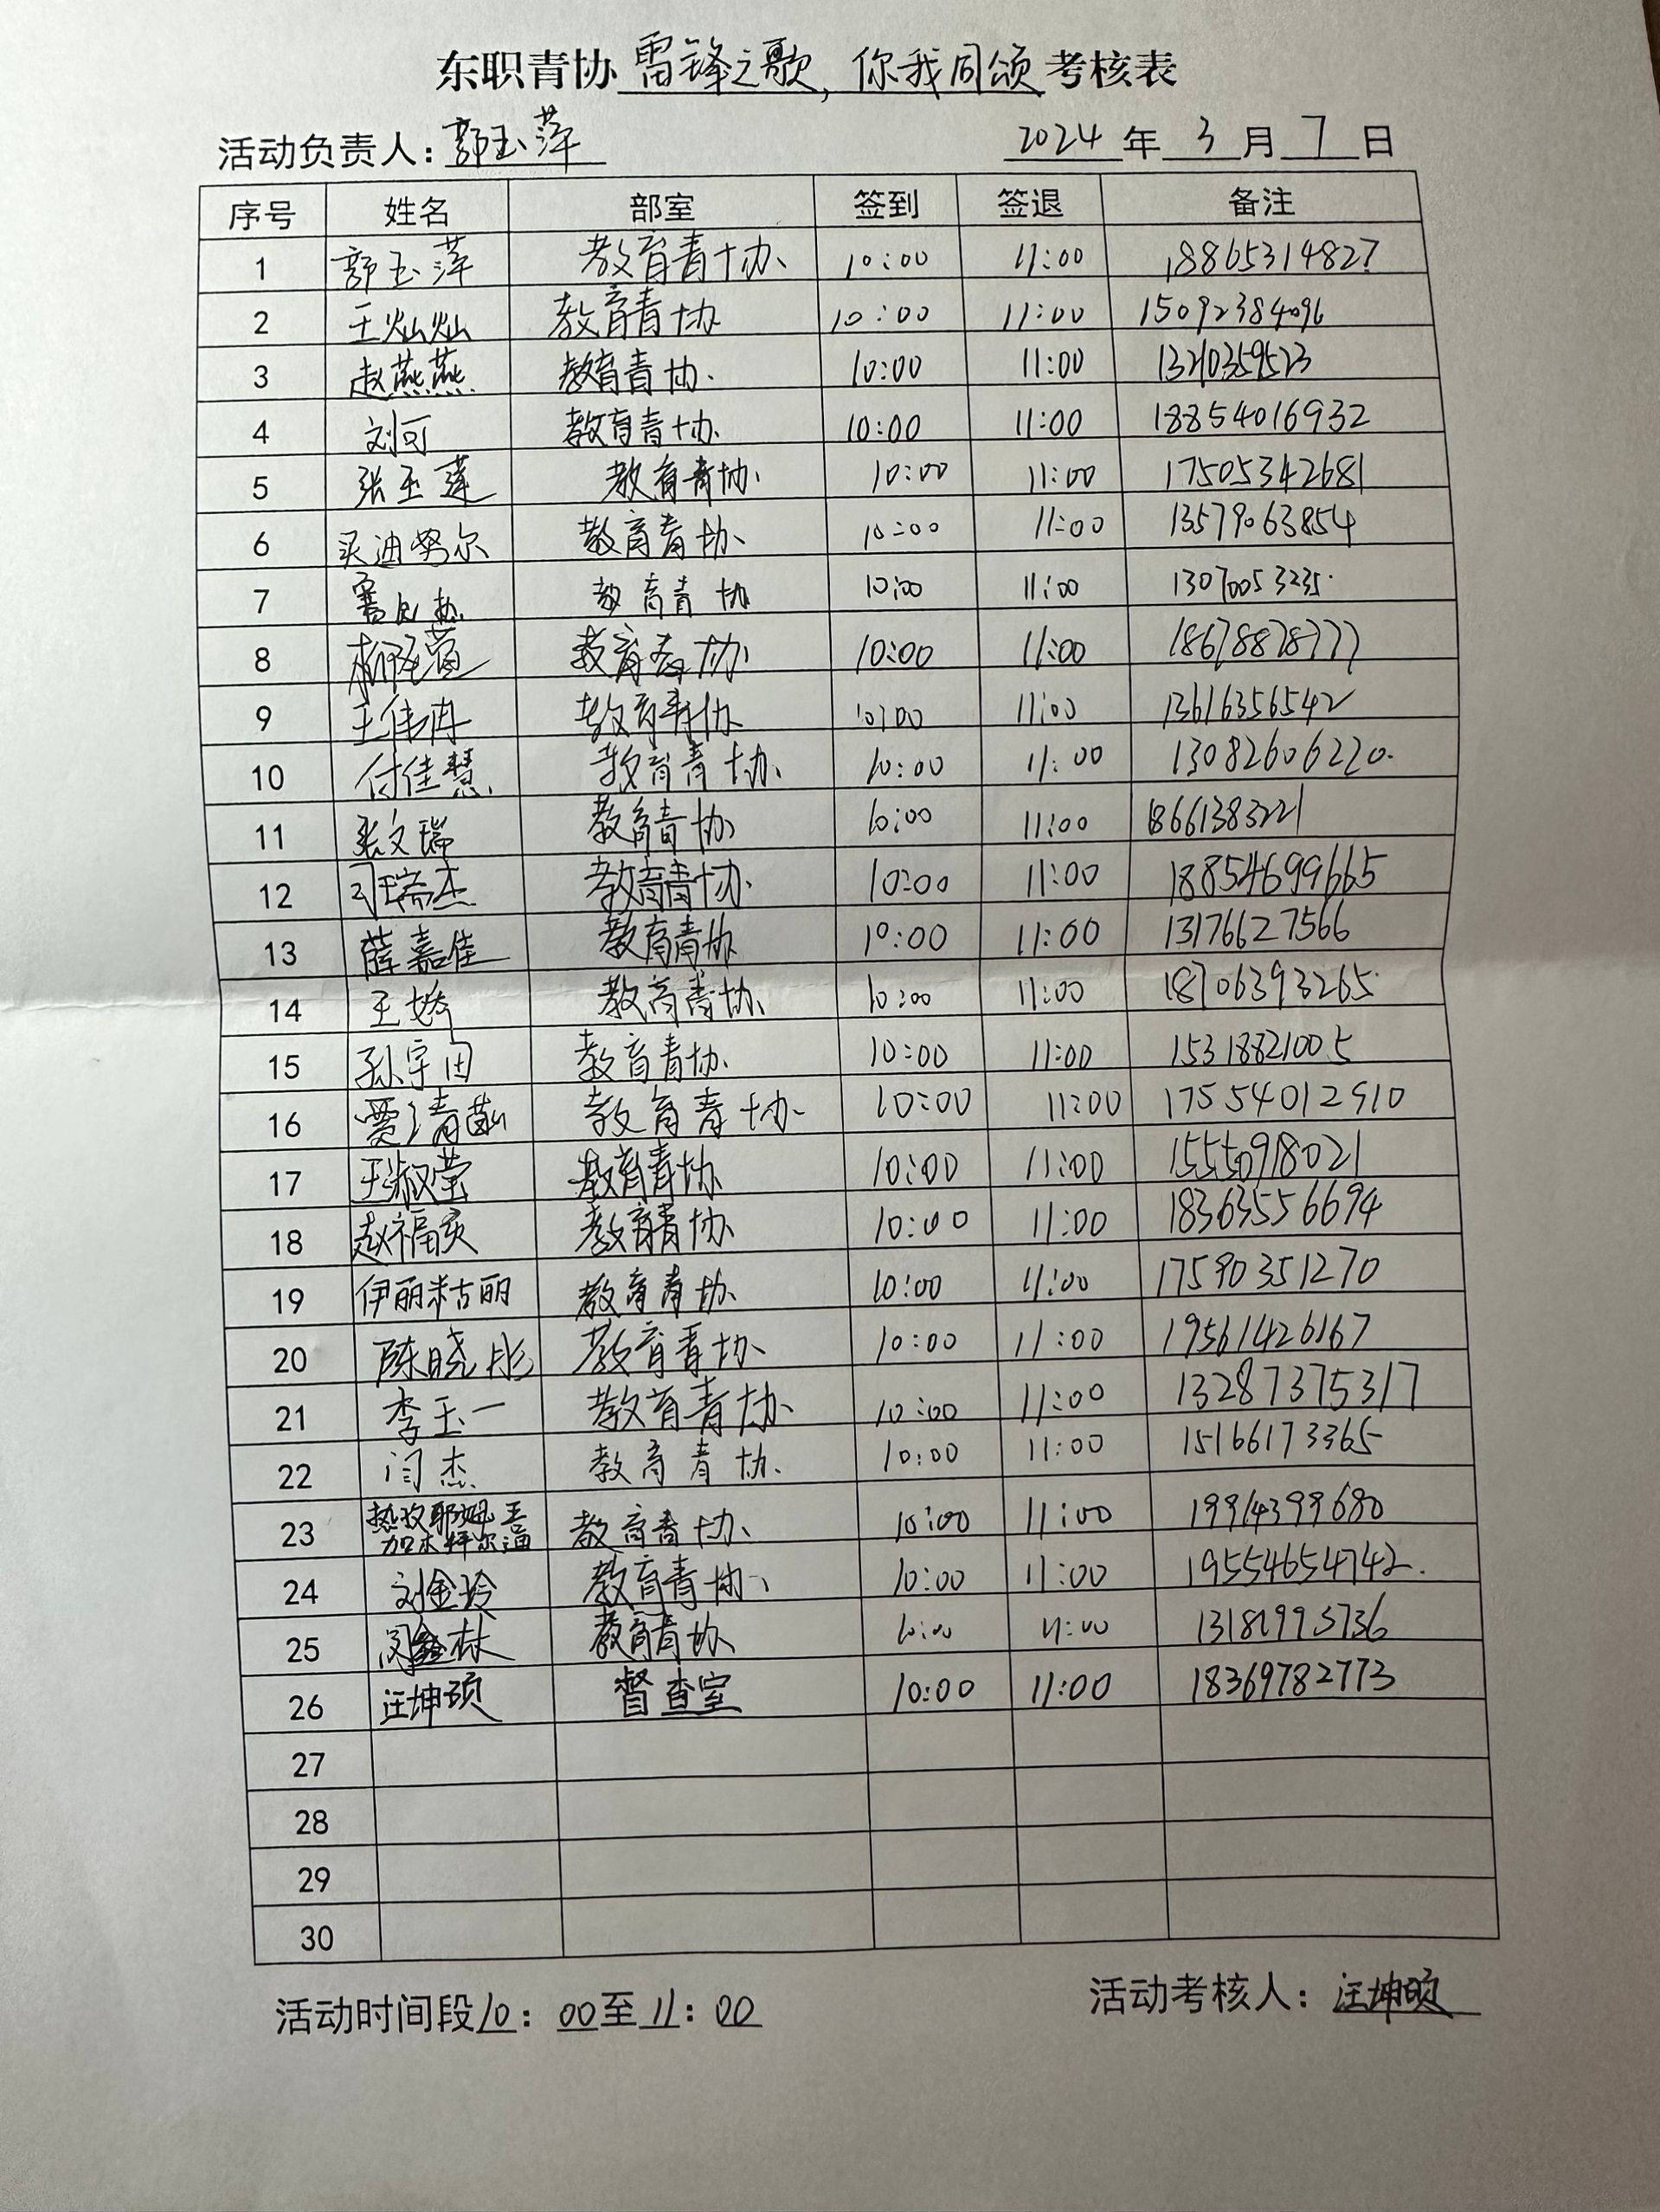 东职青协雷锋之歌,你我同颂考核表
活动负责人:郭玉萍 2024年3月7日
序号 姓名 部室 签到 签退 备注
1 郭玉萍 教育青协 10:00 11:00 18865314827
2 王灿灿 教育青协 10:00 11:00 15092384096
3 赵燕燕 教育青协 10:00 11:00
4 刘可 教育青协 10:00 11:00 18854016932
5 张玉莲 教育青协 10:00 11:00 17505342681
6 买迪努尔 教育青协 10:00 11:00 13579063854
7 教育青协 10:00 11:00 13070053235
8 教育青协 10:00 11:00 18678878777
9 王伟冉 教育青协 10:00 11:00 13616356542
10 付佳慧 教育青协 10:00 11:00 13082606220
11 张文瑞 教育青协 10:00 11:00 18661383221
12 司瑞杰 教育青协 10:00 11:00 18854699665
13 薛嘉佳 教育青协 10:00 11:00 13176627566
14 王娇 教育青协 10:00 11:00 18706393265
15 孙宇田 教育青协 10:00 11:00 15318821005
16 教育青协 10:00 11:00 17554012910
17 王淑莹 教育青协 10:00 11:00 15550918021
18 教育青协 10:00 11:00 18363556694
19 伊丽米古丽 教育青协 10:00 11:00 17590351270
20 陈晓彤 教育青协 10:00 11:00 19561426167
21 李玉一 教育青协 10:00 11:00 13287375317
22 闫杰 教育青协 10:00 11:00 15166173365
23 教育青协 10:00 11:00 19914399680
24 刘金玲 教育青协 10:00 11:00 19554654742
25 教育青协 10:00 11:00 13181995736
26 汪坤硕 督查室 10:00 11:00 18369782773
27
28
29
30
活动时间段10:00至11:00 活动考核人:汪坤硕